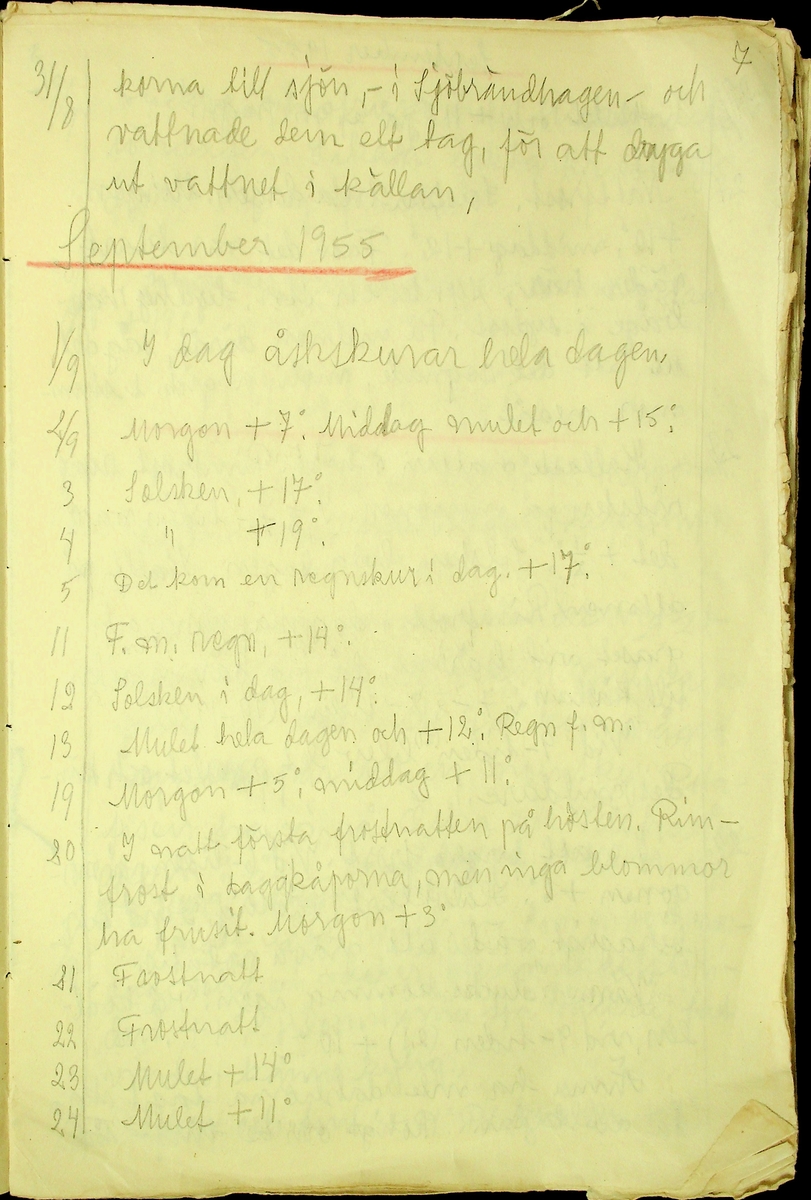 7
31/8 korna till sjön, - i Sjöbrändhagen - och
vattnade dem ett tag, för att dryga
ut vattnet i källan,
September 1955
1/9 I dag åskskurar hela dagen,
2/9 Morgon +7°. Middag mulet och +15°.
3 Solsken, +17°.
4 " +19°.
5 Det kom en regnskur i dag. +17°.
11 F.m. regn, +14°.
12 Solsken i dag, +14°.
13 Mulet hela dagen och +12°. Regn f.m.
19 Morgon +5°, middag +11°.
20 I natt första frostnatten på hösten. Rim-
frost i daggkåporna, men inga blommor
ha frusit. Morgon +3°
21 Frostnatt
22 Frostnatt
23 Mulet +14°
24 Mulet +11°